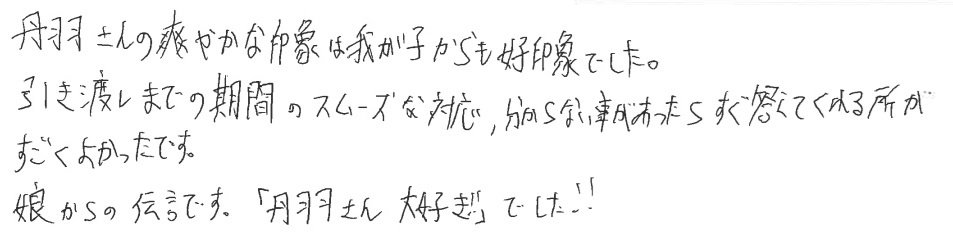 丹羽さんの爽やかな印象は我が子からも好印象でした。
引き渡しまでの期間のスムーズな対応,分からない事があったらすぐ答えてくれる所が
すごくよかったです。
娘からの伝言です。「丹羽さん 大好き!!」でした!!